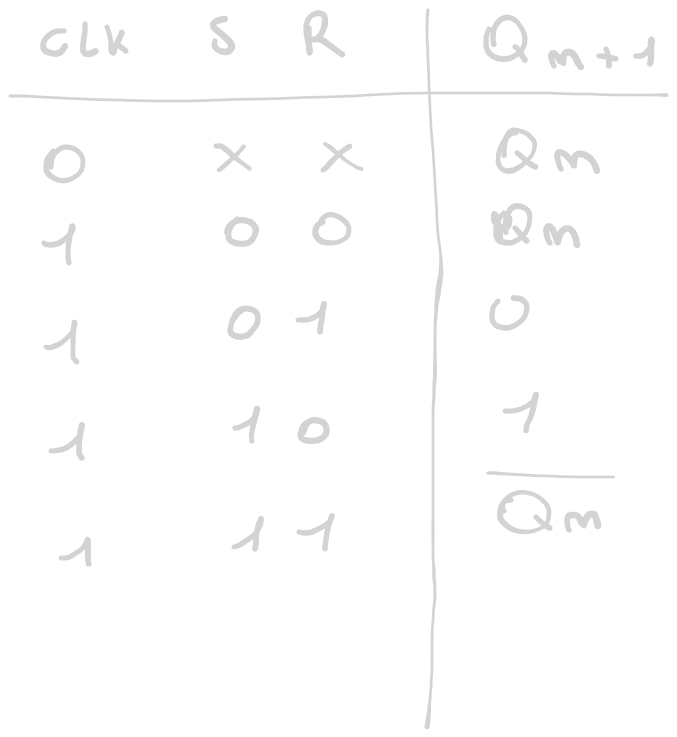 CLK S R Qm+1
0 x x Qm
1 0 0 Qm
1 0 1 0
1 1 0 1
1 1 1 Q̅m̅